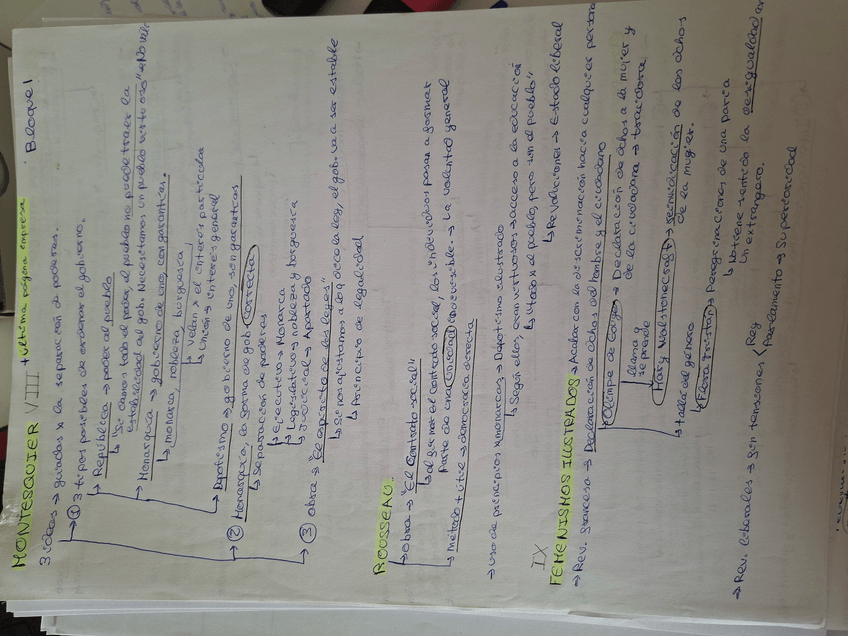 MONTESQUIER VIII + última página empresa Bloque I
3 ideas → guiados x la separación de poderes.
→ ① 3 tipos posibles de ordenar el gobierno.
↳ República → poder al pueblo
↳ "Si damos todo el poder, el pueblo no puede traer la
estabilidad al gob. Necesitamos un pueblo virtuoso"
↳ Monarquía → gobierno de uno, con garantías.
↳ monarca, nobleza, burguesía
↳ Valen x el interés particular
↳ Unión → interés general
↳ Depotismo → gobierno de uno, sin garantías
→ ② Monarquía, la forma de gob. correcta
↳ Separación de poderes
↳ Ejecutivo → Monarca
↳ Legislativo → nobleza y burguesía
↳ Judicial → Apartado
→ ③ Obra → "El espíritu de las leyes"
↳ Si nos ajustamos a lo q dice la ley, el gob. va a ser estable
↳ Principio de legalidad
ROUSSEAU.
↳ Obra → "El Contrato social"
↳ al firmar el contrato social, los individuos pasan a formar
parte de una unidad indivisible → La voluntad general
↳ método + útil → democracia directa
→ uso de principios x monarcas → Depotismo ilustrado
↳ Según ellos, eran virtuosos → acceso a la educación
↳ "todo x el pueblo, pero sin el pueblo"
↳ Revoluciones → Estado liberal
IX
FEMENISMOS ILUSTRADOS → Acabar con la discriminación hacia cualquier persona
→ Rev. francesa → Declaración de dchos del hombre y el ciudadano
↳ Olimpe de Gouges → Declaración de dchos a la mujer y
de la ciudadana → traidora.
↳ llama y
se prende
↳ Mary Wolstonecraft → reivindicación de los dchos
de la mujer.
↳ habla del género
↳ Flora Tristán → Peregrinaciones de una paria
↳ obtiene sentido la desigualdad
un extranjero.
→ Rev. liberales → Sin tensiones < Rey
Parlamento → Superioridad